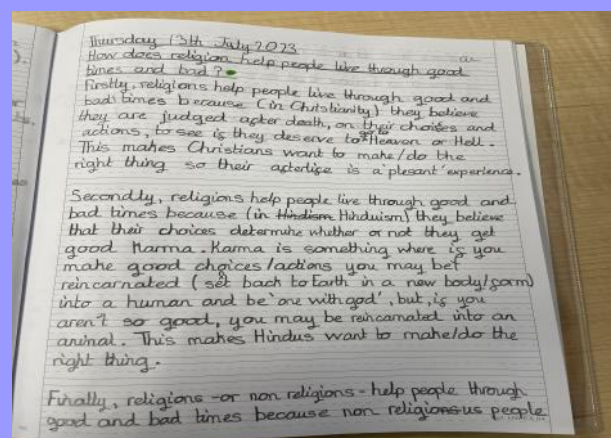 Thursday 13th July 2023
How does religion help people live through good
times and bad?
Firstly, religions help people live through good and
bad times because (in Christianity) they believe
they are judged after death, on their choises and
actions, to see if they deserve to go to Heaven or Hell.
This makes Christians want to make/do the
right thing so their afterlife is a 'plesant' experience.
Secondly, religions help people live through good and
bad times because (in Hindism Hinduism) they believe
that their choices determine whether or not they get
good Karma. Karma is something where if you
make good choices/actions you may bet
reincarnated (set back to Earth in a new body/form)
into a human and be 'one with god', but, if you
aren't so good, you may be reincarnated into an
animal. This makes Hindus want to make/do the
right thing.
Finally, religions - or non religions - help people through
good and bad times because non religious people